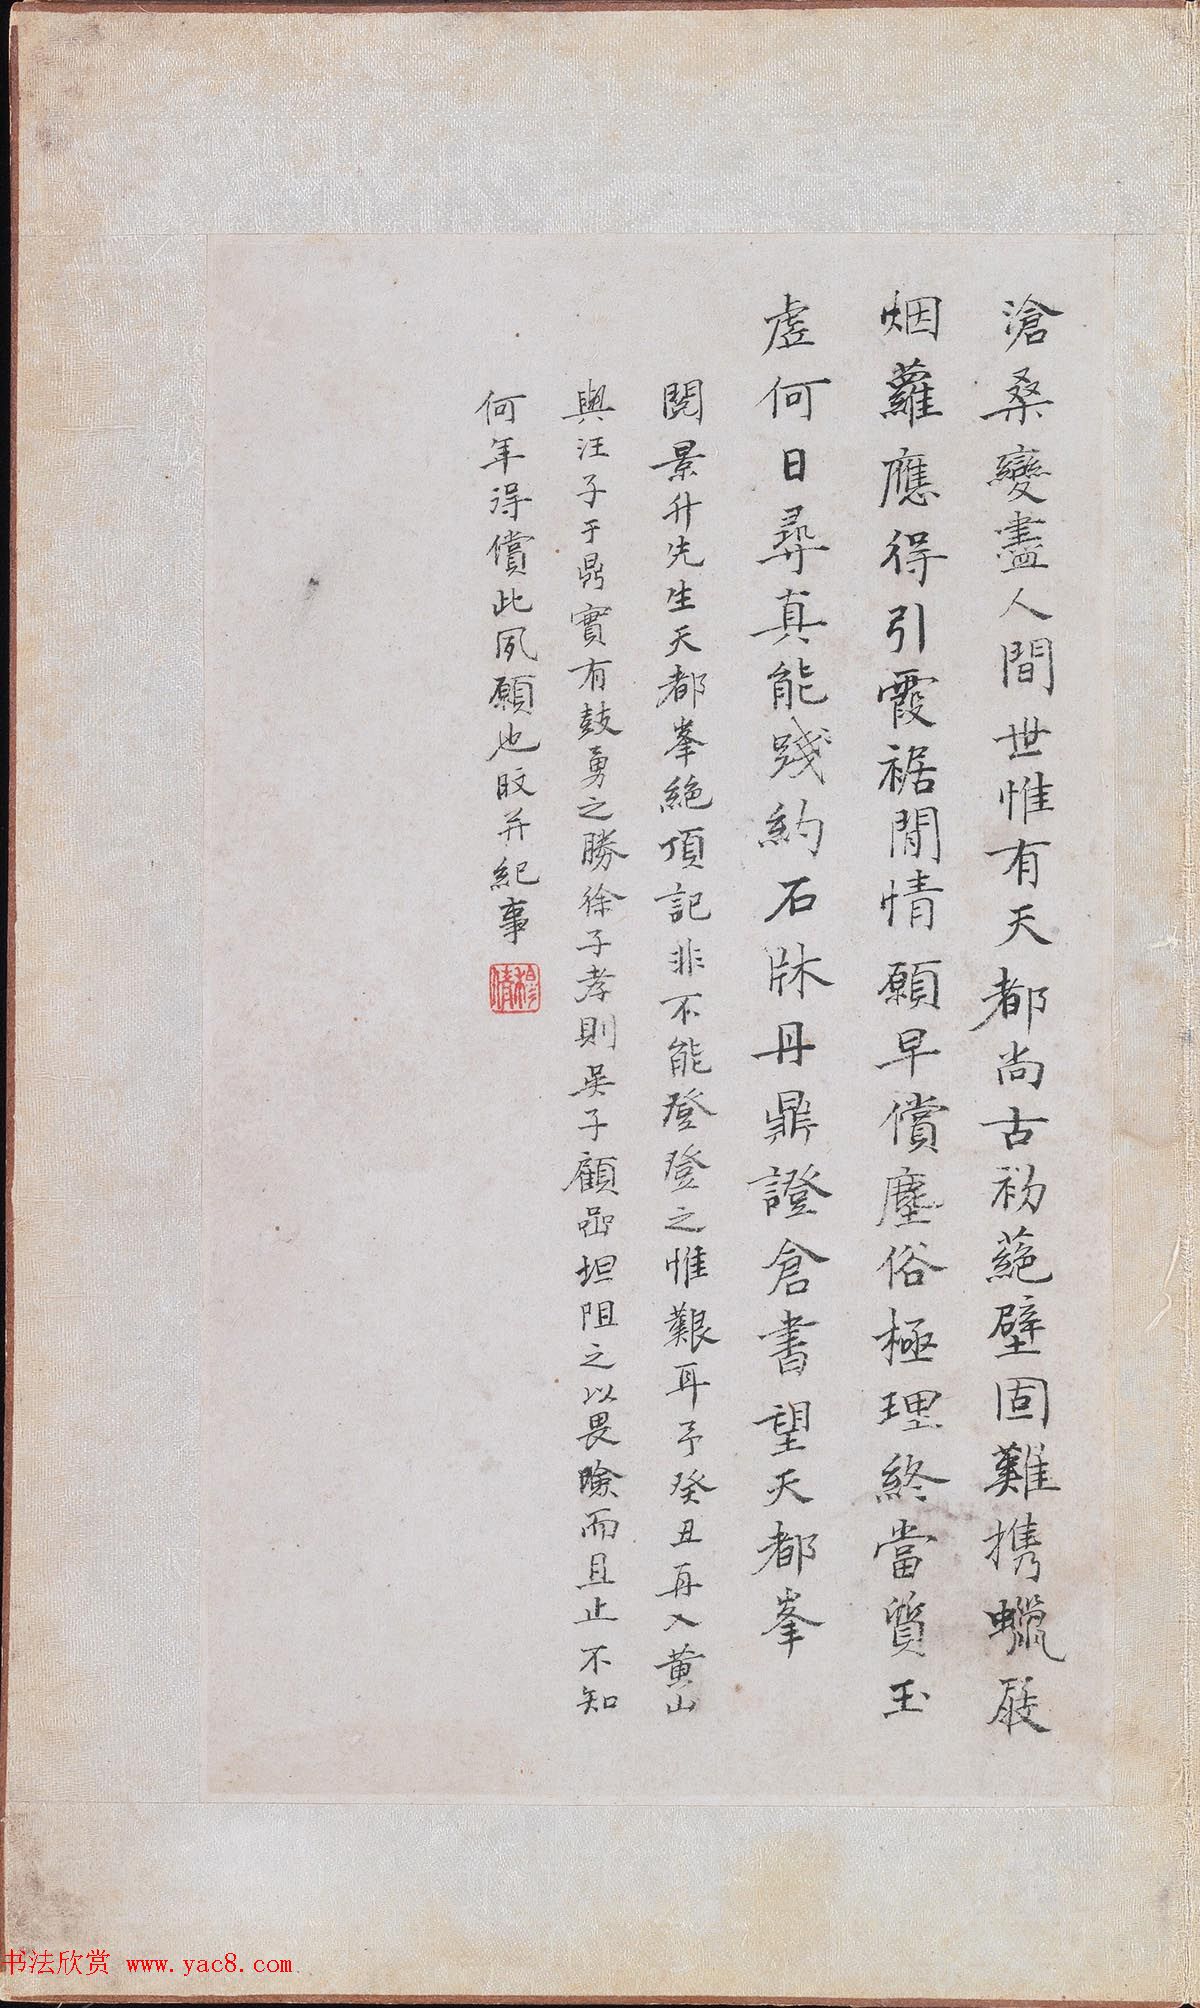 滄桑變盡人間世惟有天都尚古初葩壁固難攜蠟屐
烟蘿應得引霞裾閒情願早償塵俗極理終當質玉
虛何日尋真能踐約石牀丹鼎證倉書望天都峯
閱景升先生天都峯絶頂記非不能登登之惟艱耳予癸丑再入黄山
與汪子于鼎實有鼓勇之勝徐子孝則吳子顧嵒坦阻之以畏險而且止不知
何年得償此夙願也旼并紀事
穆倩
书法欣赏 www.yac8.com